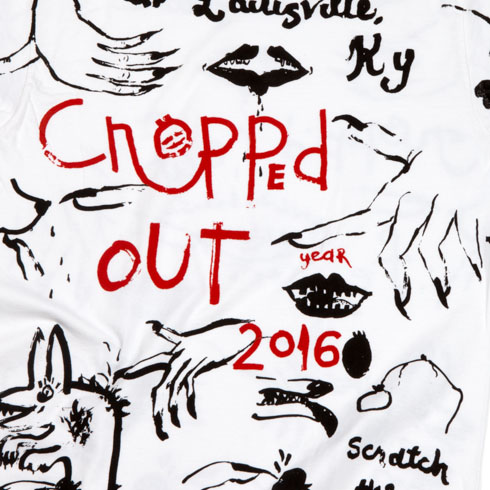 Louisville,
Ky
Chopped
OUT
year
2016
Scratch
the